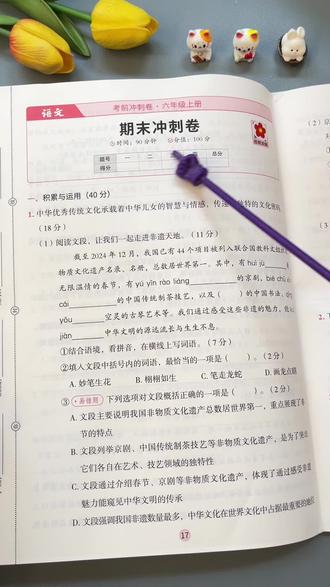 语文
考前冲刺卷·六年级上册
期末冲刺卷
时间:90分钟 分值:100分
题号 一 二 总分
得分
一、积累与运用(40分)
1. 中华优秀传统文化承载着中华儿女的智慧与情感,传递 独特的文化密码
(18分)
(1)阅读文段,让我们一起走进非遗天地。(11分)
截至2024年12月,我国已有44个项目被列入联合国教科文组
物质文化遗产名录、名册,总数居世界第一。其中,有huī jù
无限温情的春节,有yǔ yīn rào liáng 的京剧,bié chū
cái 的中国传统制茶技艺,以及( )的中国书法,
yōu 空灵的古琴艺术等。我们通过感受这些非遗的魅力,
jiàn 中华文明的源远流长与生生不息。
①结合语境,看拼音,在横线上写词语。(7分)
②填入文段中括号内的词语,最恰当的一项是( )。(2分)
A. 妙笔生花 B. 栩栩如生 C. 笔走龙蛇 D. 画龙点睛
③易错题 下列选项对文段概括正确的一项是( )。(2分)
A. 文段主要说明我国非物质文化遗产总数居世界第一,重点展现了
节的特点
B. 文段列举京剧、中国传统制茶技艺等非物质文化遗产,是为了突出
它们各自在艺术、技艺领域的独特性
C. 文段通过介绍春节、京剧等非物质文化遗产,体现了通过感受非遗
魅力能窥见中华文明的传承
D. 文段强调我国非遗数量最多,中华文化在世界文化中占据最重要的地位
17